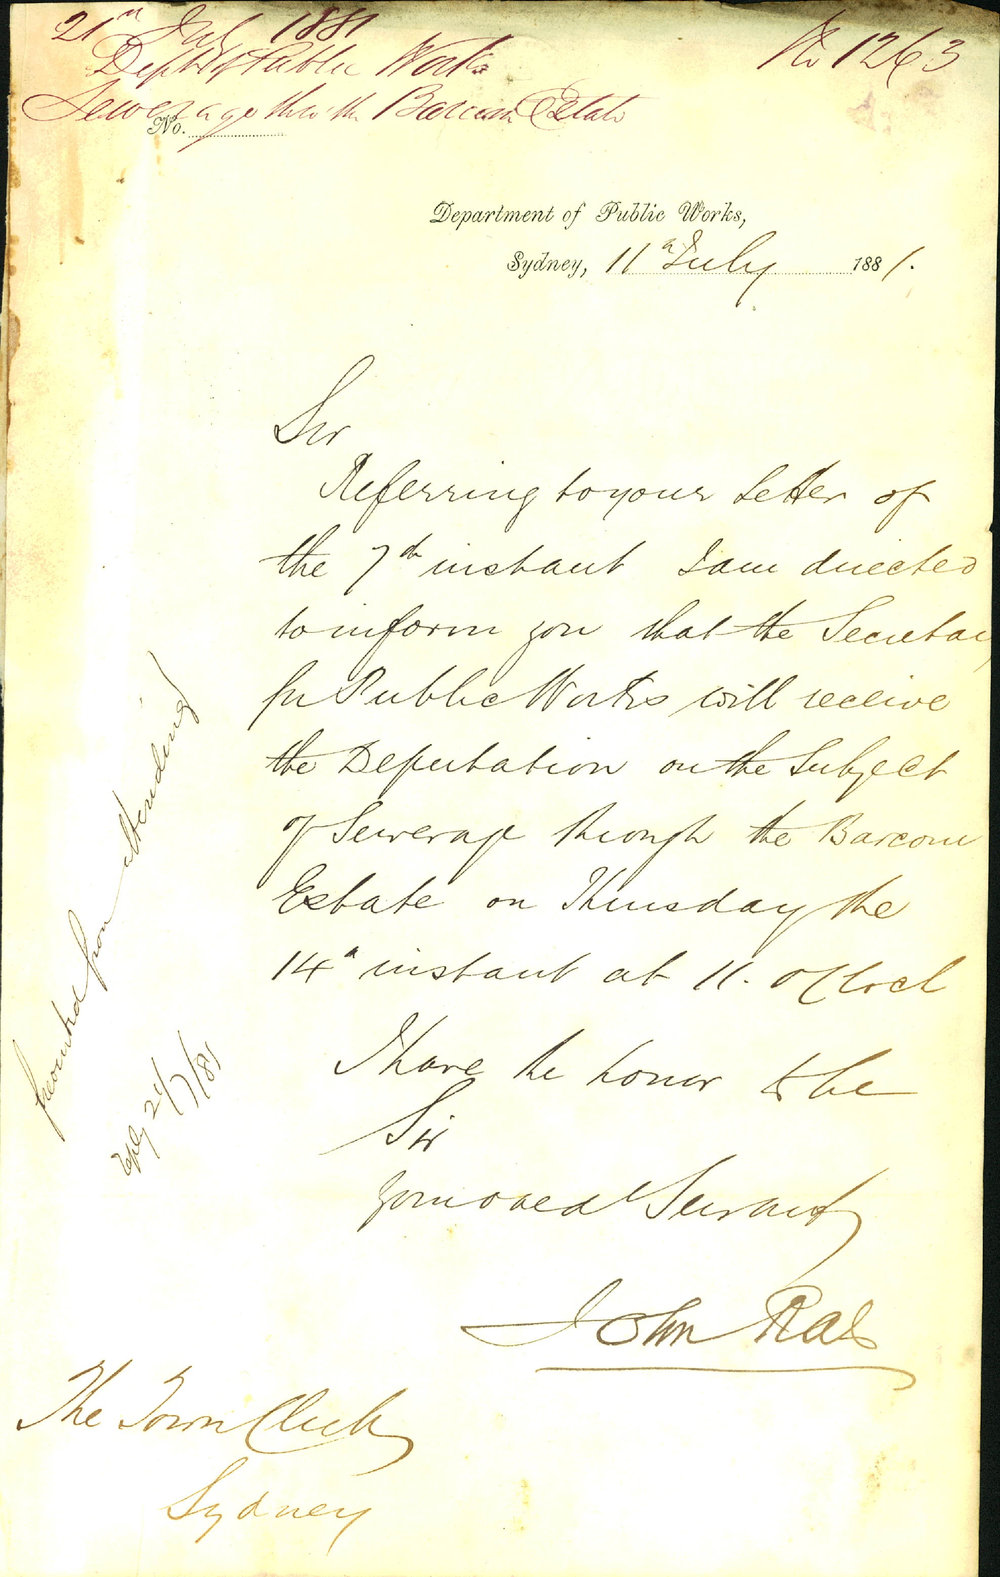 21st July 1881
Dept of Public Works
Sewerage thro the Barcom Estate
No 1263
No.
Department of Public Works,
Sydney, 11th July 1881.
Sir
Referring to your letter of
the 7th instant I am directed
to inform you that the Secretary
for Public Works will receive
the Deputation on the Subject
of Sewerage through the Barcom
Estate on Thursday the
14th instant at 11. O'Clock
I have the honor to be
Sir
your obed Servant
John Rae
The Town Clerk
Sydney
prevented from attending
reply 21/7/81